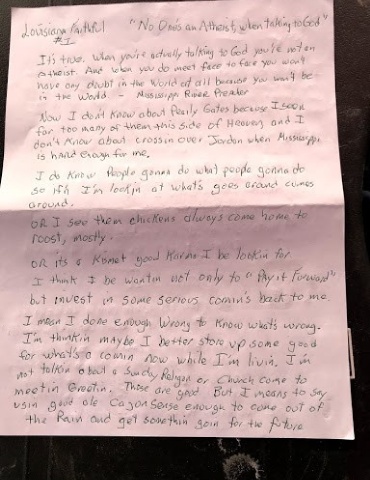 Louisiana Faithful "No One's an Atheist, when talking to God"
#1
It's true, when you're actually talking to God you're not an
Atheist. And when you do meet face to face you won't
have any doubt in the World at all because you won't be
in the World. - Mississippi River Preacher
Now I don't know about Pearly Gates because I seen
far too many of them this side of Heaven, and I
don't know about crossin over Jordan when Mississippi
is hard enough for me.
I do know People gonna do what people gonna do
so I'm lookin at what's goes around comes
around.
OR I see them chickens always come home to
roost, mostly.
OR its a Kismet good Karma I be lookin for
I think I be wantin not only to "Pay it Forward"
but invest in some serious comin's back to me.
I mean I done enough Wrong to Know what's wrong.
I'm thinkin maybe I better store up some good
for what's a comin now while I'm livin. I'm
not talkin about a Sunday Religon or Church come to
meetin Greetin. Those are good. But I means to say
usin good ole Cajon Sense enough to come out of
the Rain and get somethin goin for the future